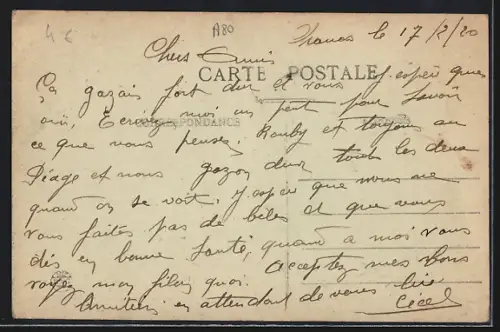 4 €
A80
le 17/2/20
Chers Amis
CARTE POSTALE
Ça gazais fort dur et vous j'espère que
oui, Ecrivez moi un peut pour savoir
CORRESPONDANCE
ce que vous pensez. et toujours au
et nous gazon deur tous les deux
quand on se voit. j'espère que vous ne
vous faites pas de biles et que vous
dis en bonne santé, quand a moi vous
voyez mon filon quoi. Acceptez mes bons
Amitiers en attendant de vous lire
Cecel